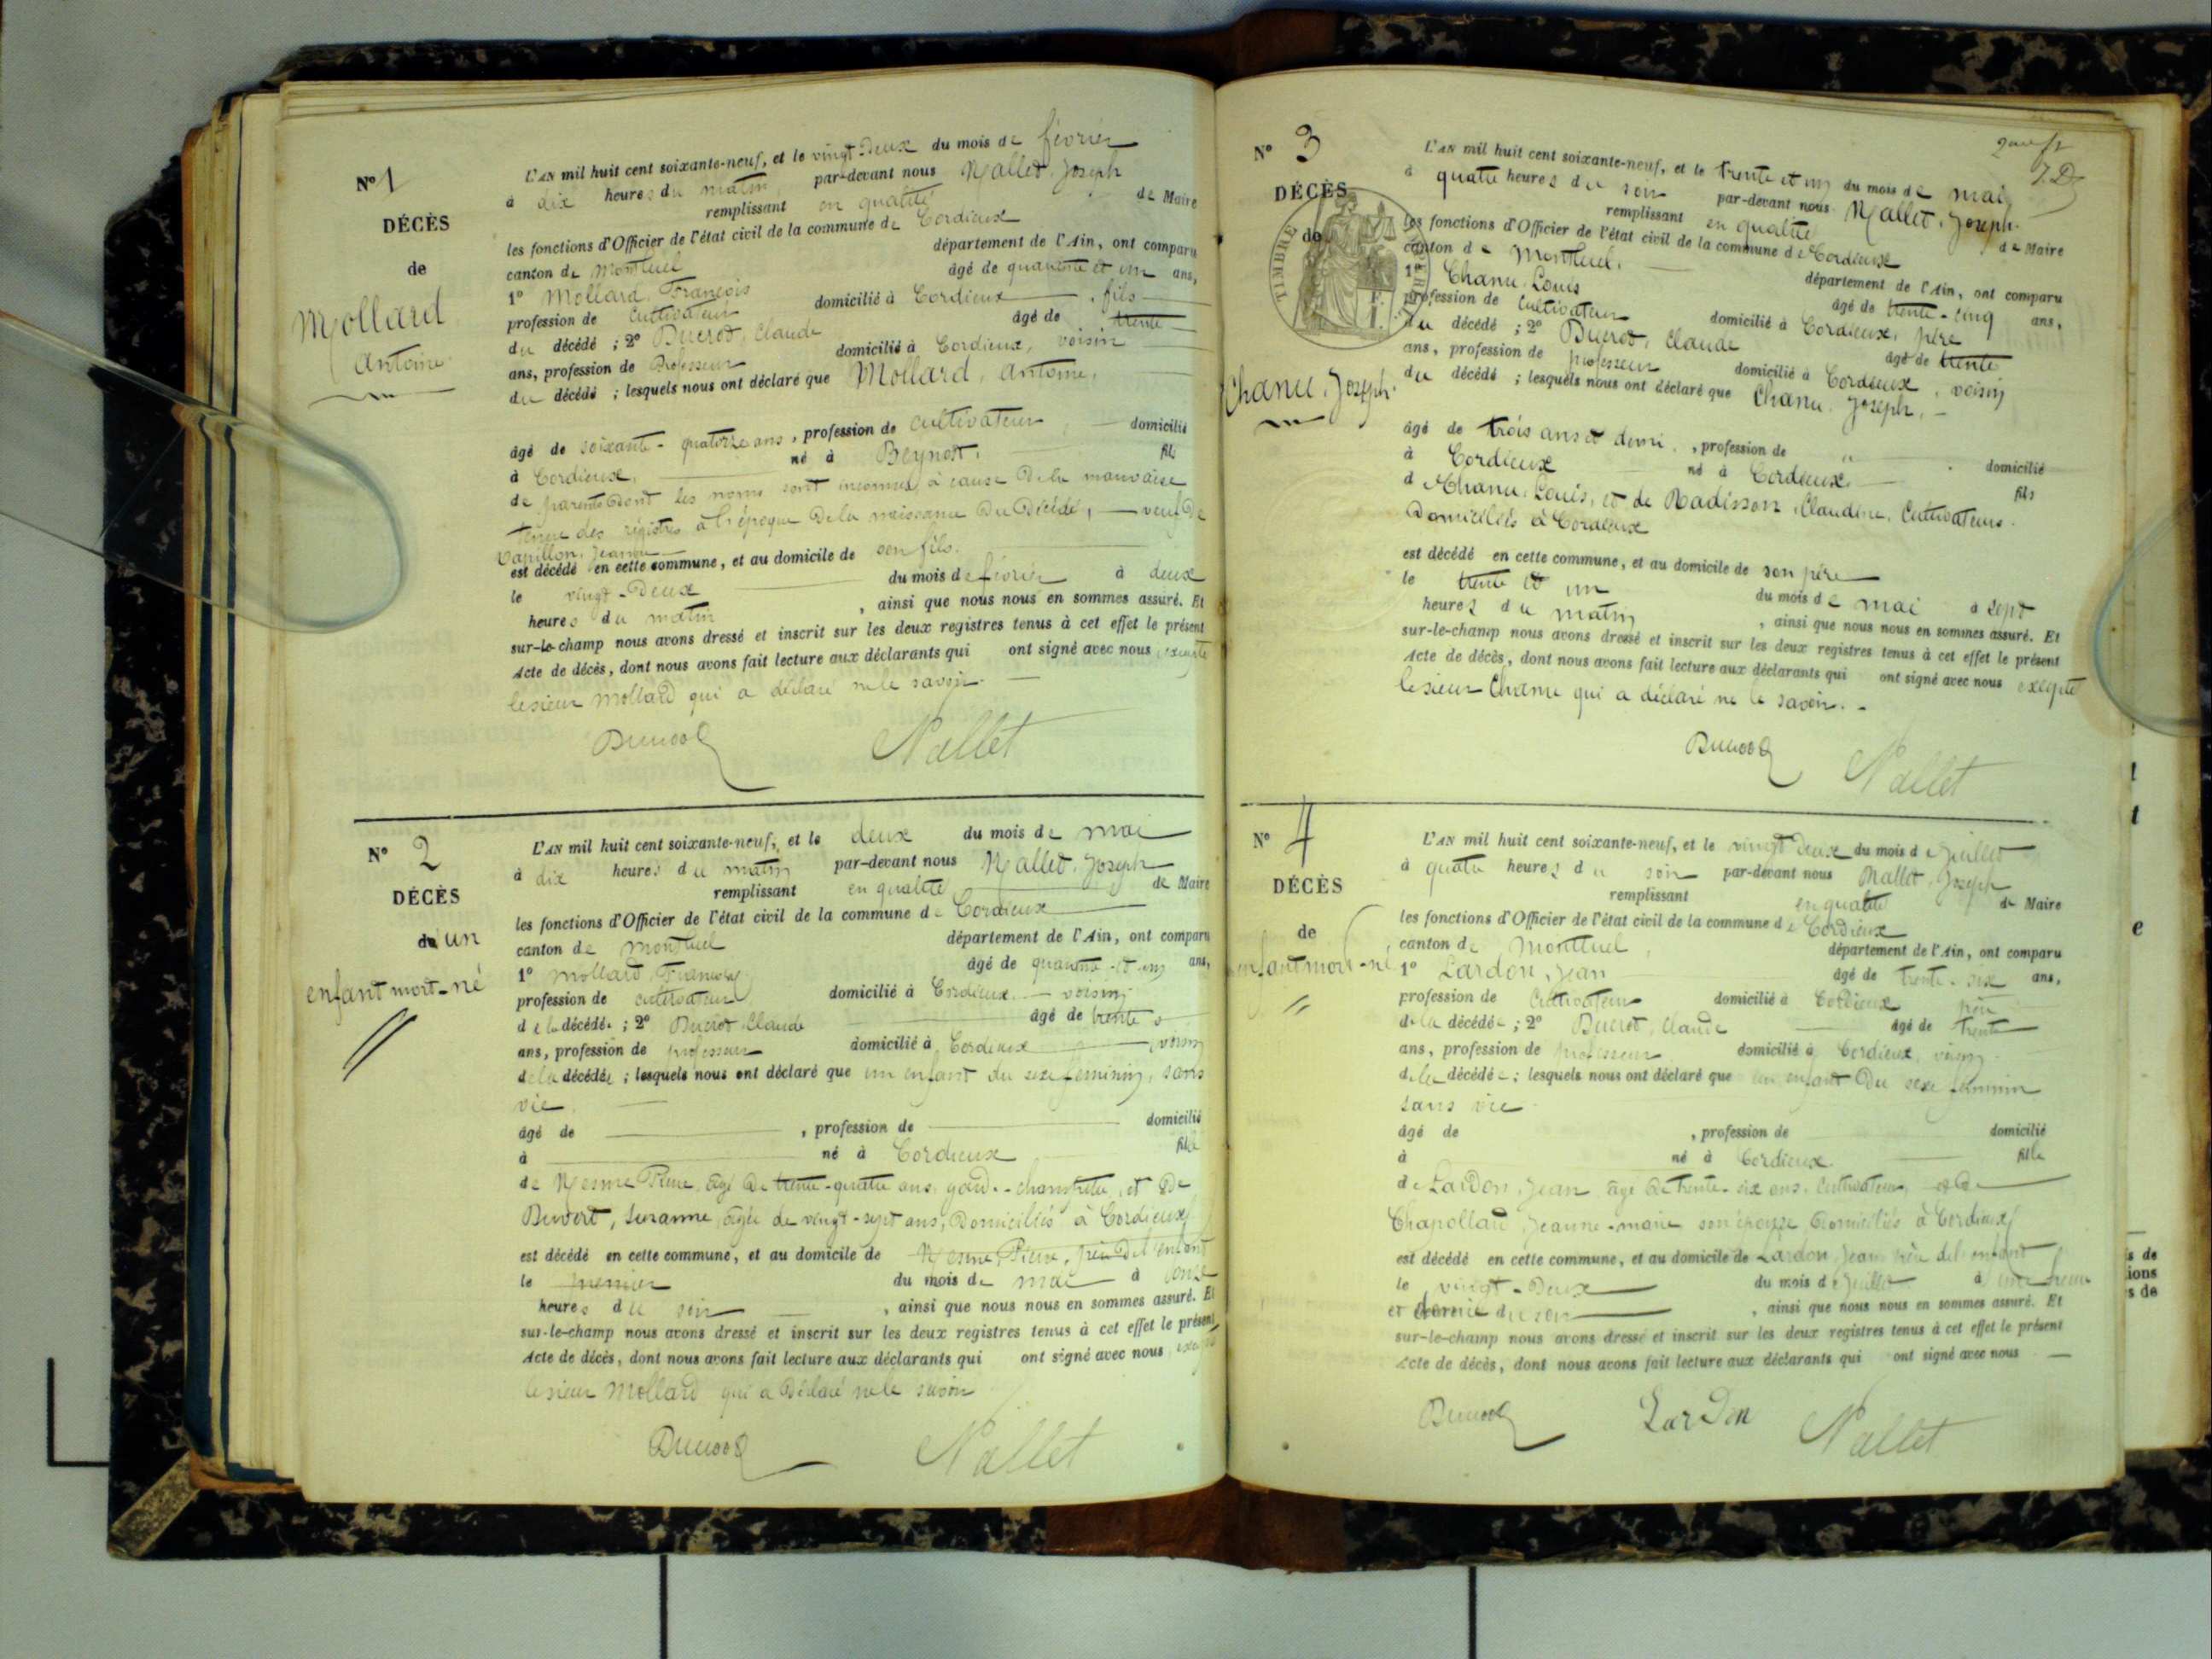 N° 1
DÉCÈS
de
Mollard
Antoine
L'AN mil huit cent soixante-neuf, et le vingt-deux du mois de février
à dix heures du matin par-devant nous Nallet, Joseph
remplissant en qualité de Maire
les fonctions d'Officier de l'état civil de la commune de Cordieux
canton de Montluel département de l'Ain, ont comparu
1° Mollard, François âgé de quarante et un ans,
profession de cultivateur domicilié à Cordieux, fils
du décédé ; 2° Ducrot, Claude âgé de trente
ans, profession de Professeur domicilié à Cordieux, voisin
du décédé ; lesquels nous ont déclaré que Mollard, Antoine,
âgé de soixante-quatorze ans, profession de cultivateur, domicilié
à Cordieux, né à Beynost, fils
de parents dont les noms sont inconnus, à cause de la mauvaise
tenue des régistres à l'époque de la naissance du décédé, veuf de
Jeanne
est décédé en cette commune, et au domicile de son fils.
le vingt-deux du mois de février à deux
heures du matin, ainsi que nous nous en sommes assuré. Et
sur-le-champ nous avons dressé et inscrit sur les deux registres tenus à cet effet le présent
Acte de décès, dont nous avons fait lecture aux déclarants qui ont signé avec nous, excepté
le sieur Mollard qui a déclaré ne le savoir.
Ducrot Nallet
N° 2
DÉCÈS
d'un
enfant mort-né
L'AN mil huit cent soixante-neuf, et le deux du mois de mai
à dix heures du matin par-devant nous Nallet, Joseph
remplissant en qualité de Maire
les fonctions d'Officier de l'état civil de la commune de Cordieux
canton de Montluel département de l'Ain, ont comparu
1° Mollard, François âgé de quarante-et-un ans,
profession de cultivateur domicilié à Cordieux, voisin
de la décédée ; 2° Ducrot, Claude âgé de trente
ans, profession de professeur domicilié à Cordieux, voisin
de la décédée ; lesquels nous ont déclaré que un enfant du sexe féminin, sans
vie.
âgé de , profession de domicilié
à né à Cordieux fille
de Nesme Pierre, âgé de trente-quatre ans, garde-champêtre, et de
Suzanne, âgée de vingt-sept ans, domiciliés à Cordieux
est décédé en cette commune, et au domicile de Nesme, Pierre, père de l'enfant
le premier du mois de mai à onze
heures du soir, ainsi que nous nous en sommes assuré. Et
sur-le-champ nous avons dressé et inscrit sur les deux registres tenus à cet effet le présent
Acte de décès, dont nous avons fait lecture aux déclarants qui ont signé avec nous excepté
le sieur Mollard qui a déclaré ne le savoir
Ducrot Nallet
N° 3
DÉCÈS
de
TIMBRE
Chanu, Joseph.
L'AN mil huit cent soixante-neuf, et le trente et un du mois de mai
à quatre heures du soir par-devant nous Nallet, Joseph.
remplissant en qualité de Maire
les fonctions d'Officier de l'état civil de la commune de Cordieux
canton de Montluel. département de l'Ain, ont comparu
1° Chanu, Louis âgé de trente-cinq ans,
profession de Cultivateur domicilié à Cordieux, père
du décédé ; 2° Ducrot, Claude âgé de trente
ans, profession de professeur domicilié à Cordieux, voisin
du décédé ; lesquels nous ont déclaré que Chanu, Joseph,
âgé de trois ans et demi, profession de " domicilié
à Cordieux né à Cordieux. fils
de Chanu, Louis, et de Radisson, Claudine, Cultivateurs
Domiciliés à Cordieux
est décédé en cette commune, et au domicile de son père
le trente et un du mois de mai à sept
heures du matin, ainsi que nous nous en sommes assuré. Et
sur-le-champ nous avons dressé et inscrit sur les deux registres tenus à cet effet le présent
Acte de décès, dont nous avons fait lecture aux déclarants qui ont signé avec nous excepté
le sieur Chanu qui a déclaré ne le savoir.
Ducrot Nallet
N° 4
DÉCÈS
de
enfant mort-né
L'AN mil huit cent soixante-neuf, et le vingt deux du mois de juillet
à quatre heures du soir par-devant nous Nallet, Joseph
remplissant en qualité de Maire
les fonctions d'Officier de l'état civil de la commune de Cordieux
canton de Montluel, département de l'Ain, ont comparu
1° Lardon, Jean âgé de trente-six ans,
profession de Cultivateur domicilié à Cordieux père
de la décédée ; 2° Ducrot, Claude âgé de trente
ans, profession de professeur domicilié à Cordieux, voisin
de la décédée ; lesquels nous ont déclaré que un enfant du sexe féminin
sans vie
âgé de , profession de domicilié
à né à Cordieux fille
de Lardon, Jean âgé de trente-six ans, Cultivateur, et de
Jeanne-marie son épouse domiciliés à Cordieux
est décédé en cette commune, et au domicile de Lardon, Jean père de l'enfant
le vingt-deux du mois de juillet à une heure
et demie du soir, ainsi que nous nous en sommes assuré. Et
sur-le-champ nous avons dressé et inscrit sur les deux registres tenus à cet effet le présent
Acte de décès, dont nous avons fait lecture aux déclarants qui ont signé avec nous
Ducrot Lardon Nallet